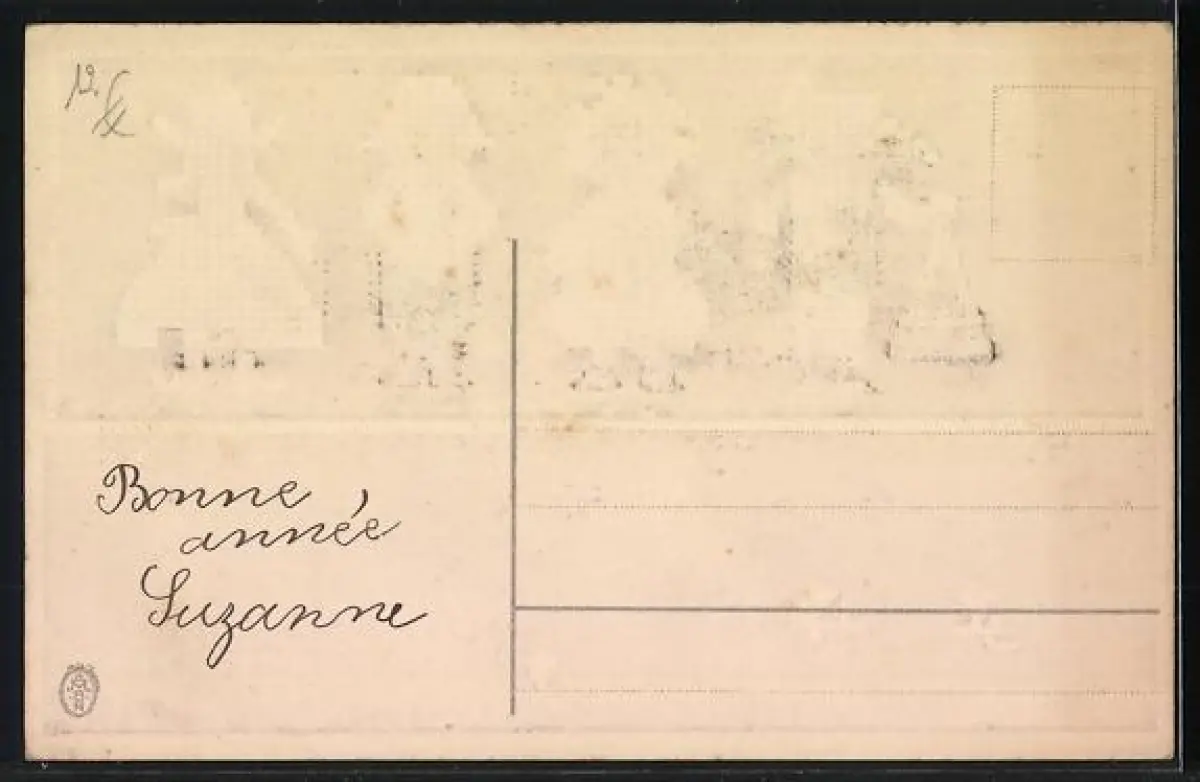 12.
Bonne
année
Suzanne